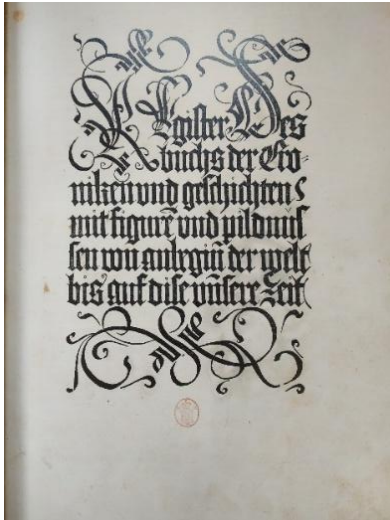 Register Des
buchs der Cro-
niken und geschichten
mit figurẽ und pildnus
sen von anbegiñ der welt
bis auf dise uñsere Zeit